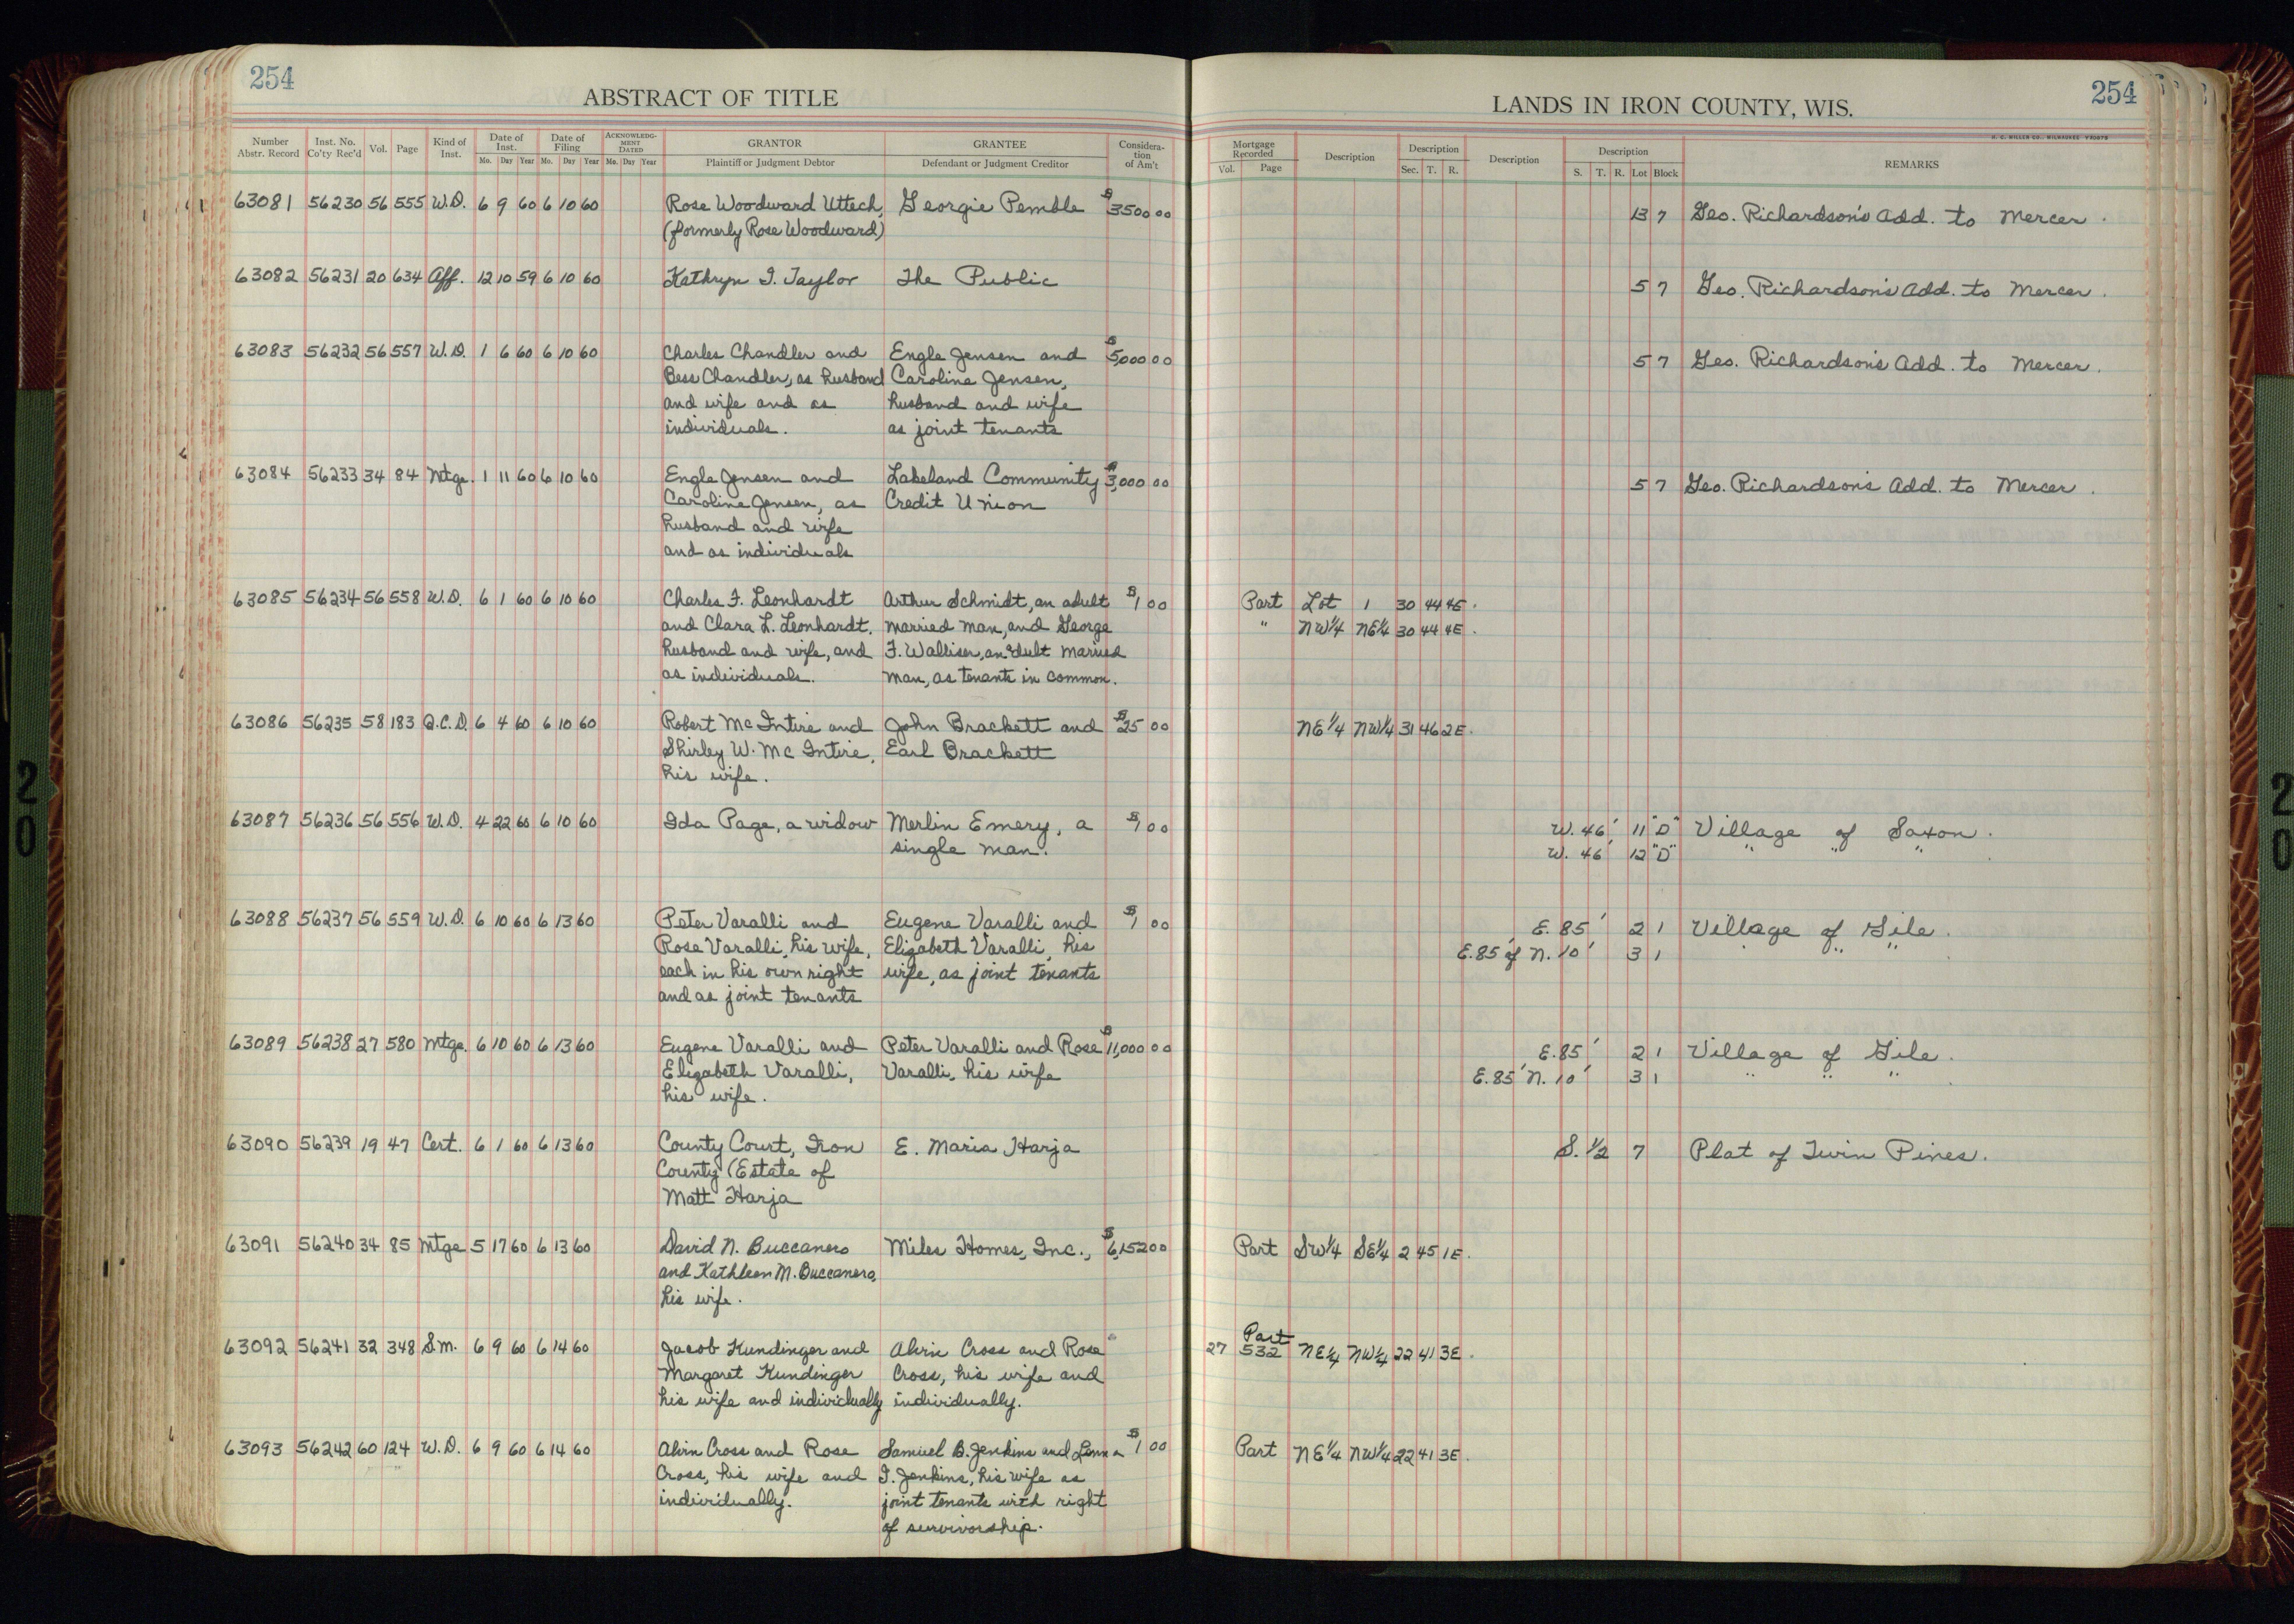 254
ABSTRACT OF TITLE
Number Abstr. Record Inst. No. Co'ty Rec'd Vol. Page Kind of Inst. Date of Inst. Mo. Day Year Date of Filing Mo. Day Year ACKNOWLEDGMENT DATED Mo. Day Year GRANTOR Plaintiff or Judgment Debtor GRANTEE Defendant or Judgment Creditor Consideration of Am't
63081 56230 56 555 W.D. 6 9 60 6 10 60 Rose Woodward Uttech, Georgie Pemble $3500 00
(formerly Rose Woodward)
63082 56231 20 634 Aff. 12 10 59 6 10 60 Kathryn I. Taylor The Public
63083 56232 56 557 W.D. 1 6 60 6 10 60 Charles Chandler and Engle Jensen and $5,000 00
Bess Chandler, as husband Caroline Jensen,
and wife and as husband and wife
individuals. as joint tenants
63084 56233 34 84 Mtge. 1 11 60 6 10 60 Engle Jensen and Lakeland Community $3,000 00
Caroline Jensen, as Credit Union
husband and wife
and as individuals
63085 56234 56 558 W.D. 6 1 60 6 10 60 Charles F. Leonhardt Arthur Schmidt, an adult $1 00
and Clara L. Leonhardt, married man, and George
husband and wife, and F. Walliser, an adult married
as individuals. man, as tenants in common.
63086 56235 58 183 Q.C.D. 6 4 60 6 10 60 Robert McIntire and John Brackett and $25 00
Shirley W. McIntire, Earl Brackett
his wife.
63087 56236 56 556 W.D. 4 22 60 6 10 60 Ida Page, a widow Merlin Emery, a $1 00
single man.
63088 56237 56 559 W.D. 6 10 60 6 13 60 Peter Varalli and Eugene Varalli and $1 00
Rose Varalli, his wife, Elizabeth Varalli, his
each in his own right wife, as joint tenants
and as joint tenants
63089 56238 27 580 Mtge. 6 10 60 6 13 60 Eugene Varalli and Peter Varalli and Rose $11,000 00
Elizabeth Varalli, Varalli, his wife
his wife.
63090 56239 19 47 Cert. 6 1 60 6 13 60 County Court, Iron E. Maria Harja
County (Estate of
Matt Harja
63091 56240 34 85 Mtge 5 17 60 6 13 60 David N. Buccanero Miles Homes, Inc., $6,152 00
and Kathleen M. Buccanero,
his wife.
63092 56241 32 348 S.M. 6 9 60 6 14 60 Jacob Kundinger and Alvin Cross and Rose
Margaret Kundinger Cross, his wife and
his wife and individually individually.
63093 56242 60 124 W.D. 6 9 60 6 14 60 Alvin Cross and Rose Samuel B. Jenkins and Lenna $1 00
Cross, his wife and I. Jenkins, his wife as
individually. joint tenants with right
of survivorship.
254
LANDS IN IRON COUNTY, WIS.
H. C. MILLER CO., MILWAUKEE
Mortgage Recorded Vol. Page Description Description Sec. T. R. Description Description S. T. R. Lot Block REMARKS
13 7 Geo. Richardson's Add. to Mercer.
5 7 Geo. Richardson's Add. to Mercer.
5 7 Geo. Richardson's Add. to Mercer.
5 7 Geo. Richardson's Add. to Mercer.
Part Lot 1 30 44 4E.
" NW¼ NE¼ 30 44 4E.
NE¼ NW¼ 31 46 2E.
W. 46' 11 "D" Village of Saxon.
W. 46' 12 "D" " " "
E. 85' 2 1 Village of Gile.
E. 85' of N. 10' 3 1 " " "
E. 85' 2 1 Village of Gile.
E. 85' N. 10' 3 1 " " "
S. ½ 7 Plat of Twin Pines.
Part SW¼ SE¼ 2 45 1E.
Part
27 532 NE¼ NW¼ 22 41 3E.
Part NE¼ NW¼ 22 41 3E.
20
20